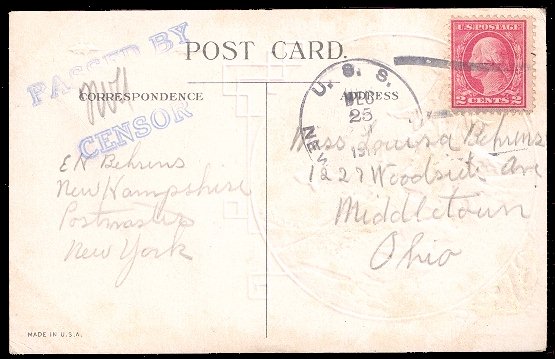 PASSED BY
CENSOR
POST CARD.
CORRESPONDENCE
ADDRESS
U.S. POSTAGE
2 CENTS 2
U. S. S.
DEC
25
191
NEW
E N Behrens
New Hampshire
Postmaster
New York
Miss Louisa Behrens
1227 Woodside Ave
Middletown
Ohio
MADE IN U.S.A.